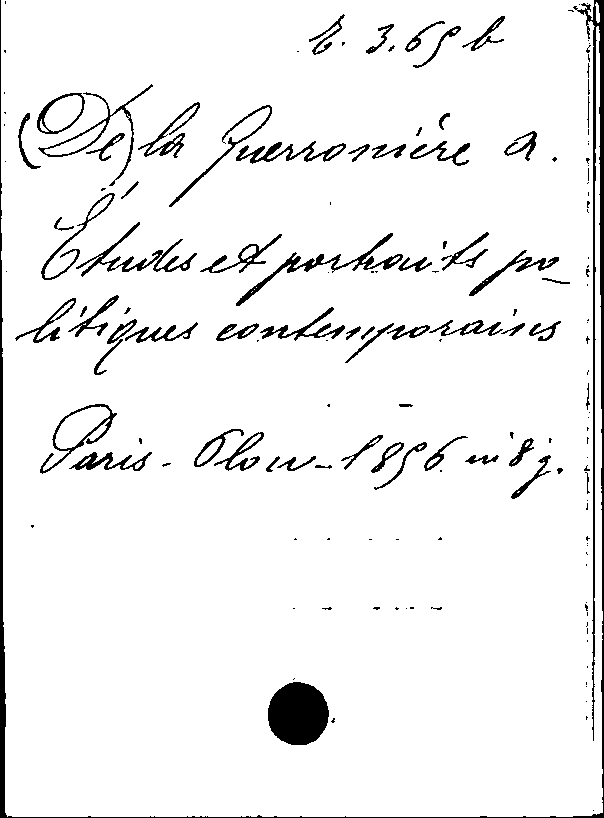 E. 3.65 b
(De) la Guerronière A.
Études et portraits po-
litiques contemporains
Paris - Plon - 1856 in 8